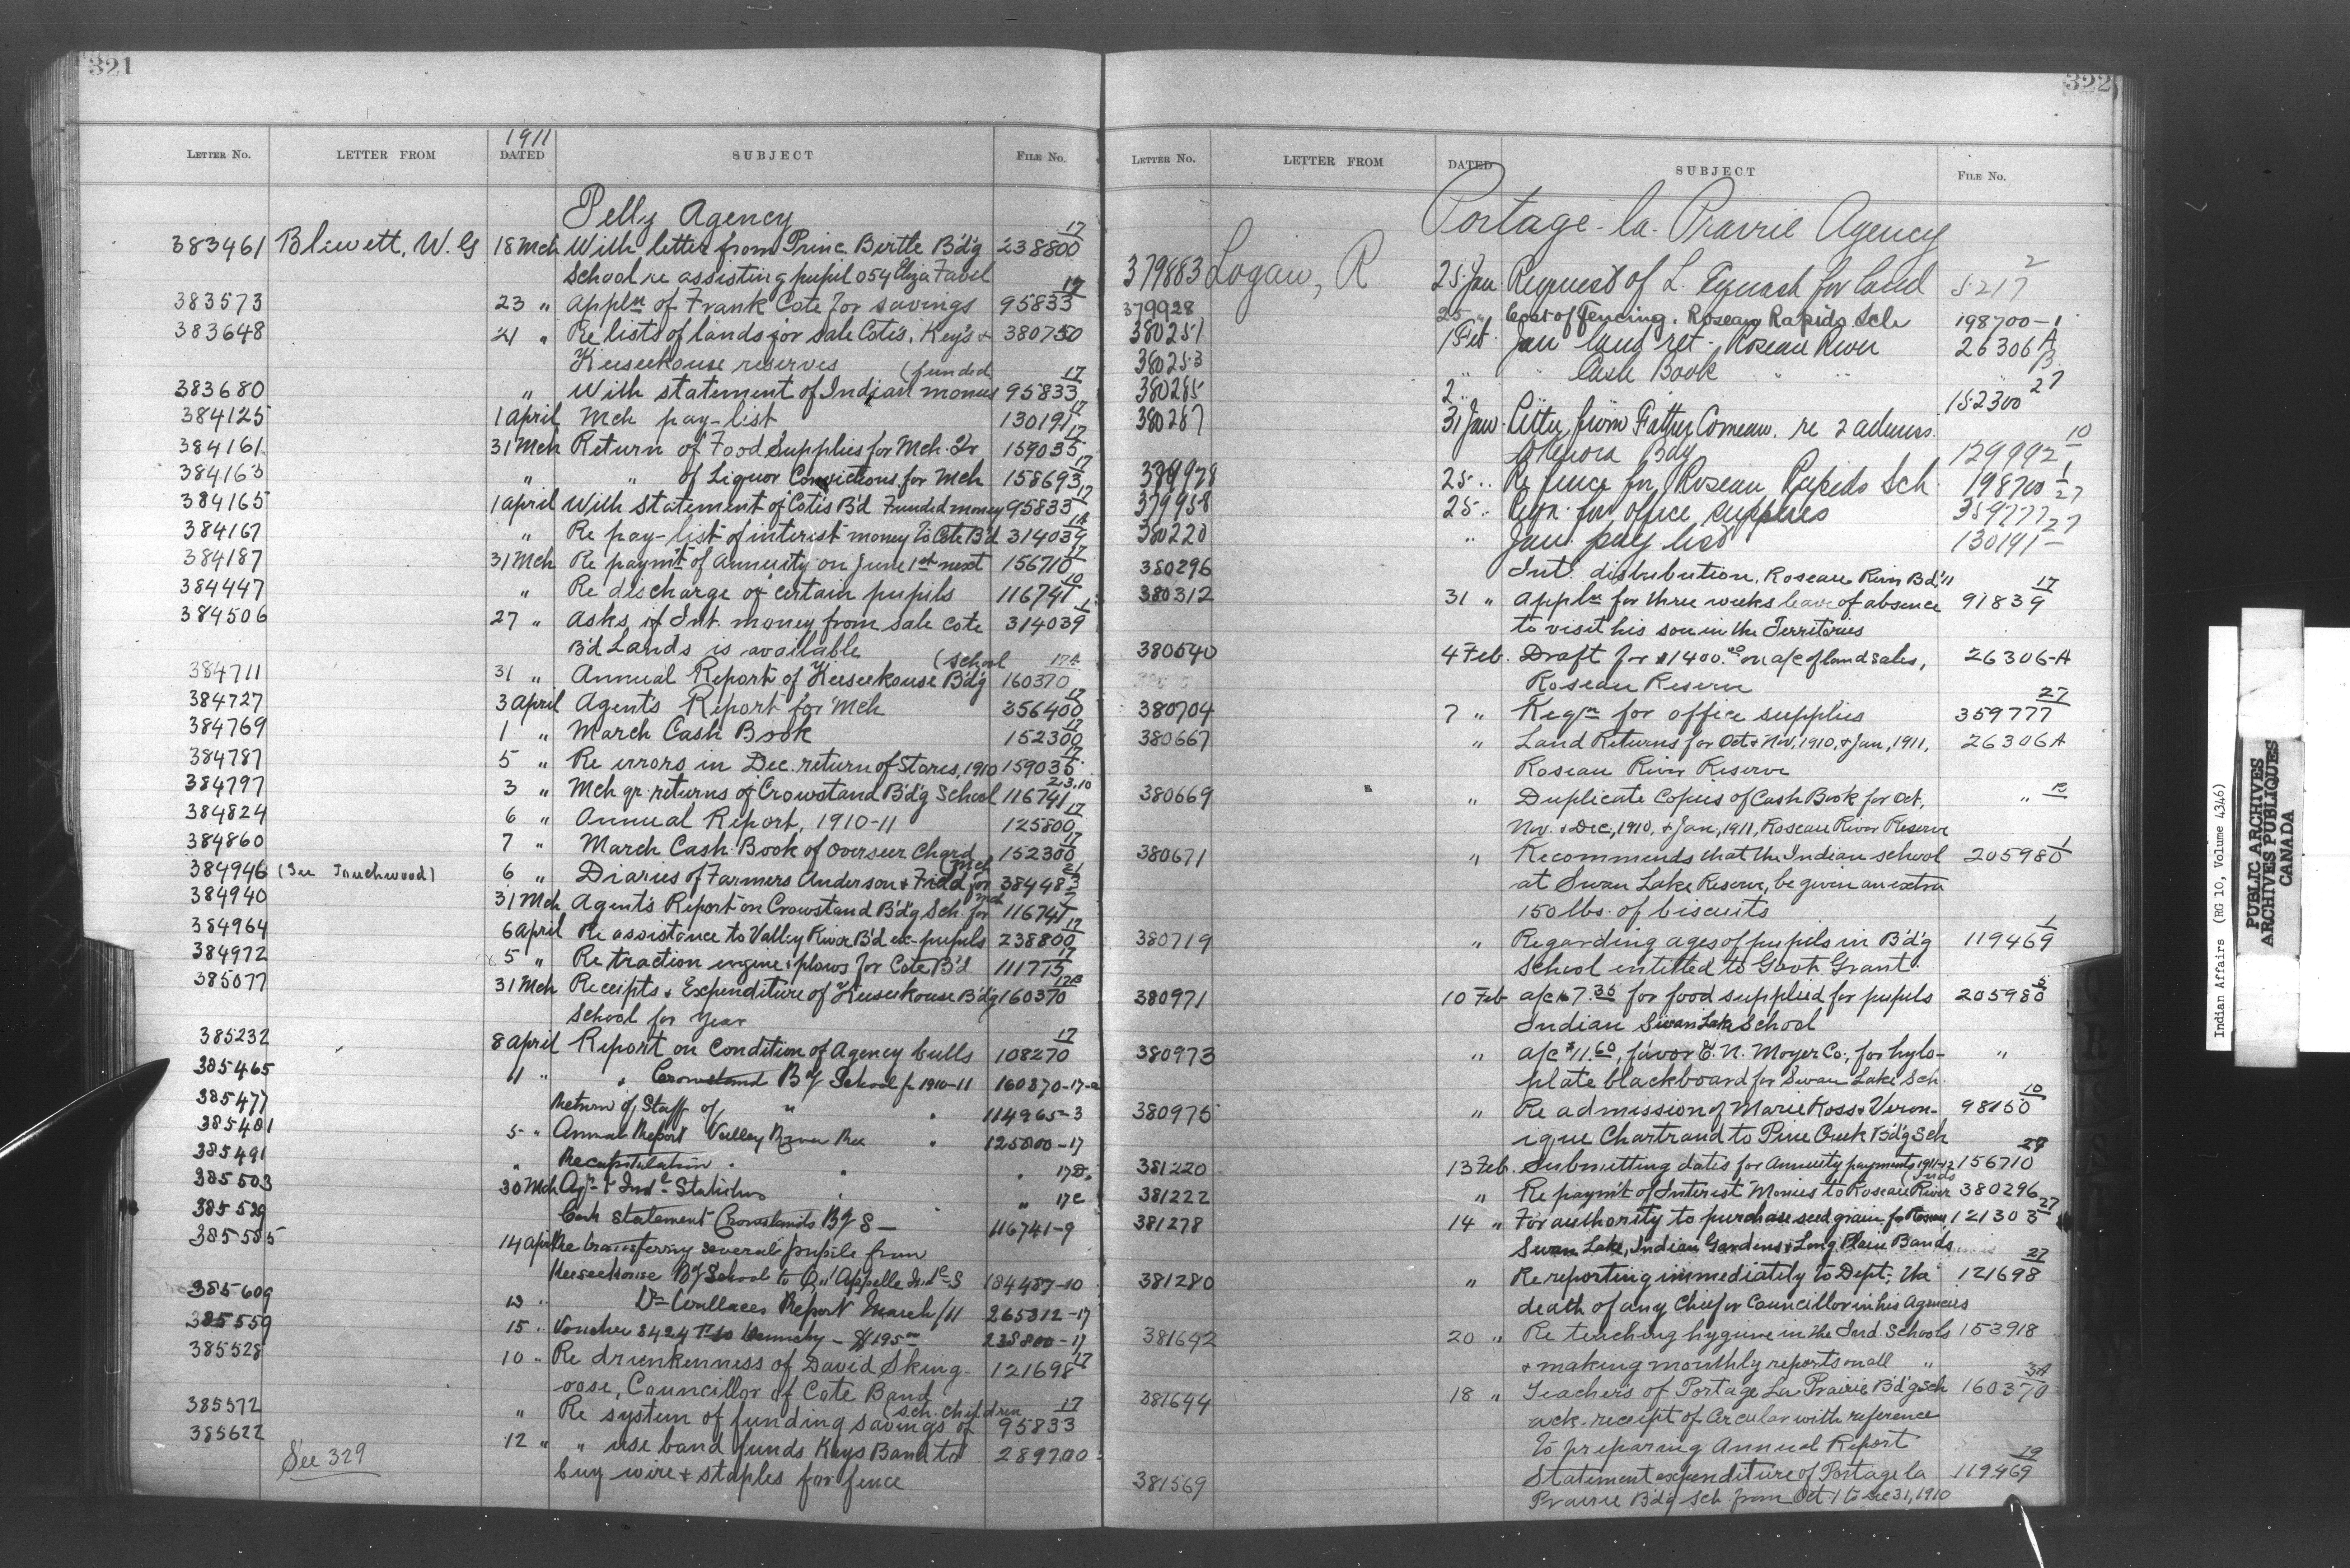 321
1911
LETTER No. LETTER FROM DATED SUBJECT FILE No.
Pelly Agency
383461 Blewett, W. G 18 Mch With letter from Princ. Birtle B'd'g 238800 17
School re assisting pupil 054 Eliza Favel
383573 23 " Appln of Frank Cote for savings 95833 17
383648 21 " Re lists of lands for sale Cotes, Key's & 380750
Keeseekouse reserves (funded
383680 " With statement of Indian monies 95833 17
384125 1 April Mch pay-list 130191 17
384161 31 Mch Return of Food Supplies for Mch. Qr 159035 17
384163 " " of Liquor Convictions for Mch 158693 17
384165 1 April With statement of Cotes B'd Funded money 95833 17
384167 " Re pay-list of interest money to Cote B'd 314039 1A
384187 31 Mch Re paym't of Annuity on June 1st next 156710 17
384447 " Re discharge of certain pupils 116741 10
384506 27 " Asks if Int. money from sale Cote 314039 1
B'd Lands is available (School
384711 31 " Annual Report of Keeseekouse B'd'g 160370 17A
384727 3 April Agent's Report for Mch 356400 17
384769 1 " March Cash Book 152300 17
384787 5 " Re errors in Dec. return of Stores, 1910 159035 17
384797 3 " Mch qr returns of Crowstand B'd'g School 116741 2.3.10
384824 6 " Annual Report, 1910-11 125800 17
384860 7 " March Cash Book of Overseer Chard 152300 17
384946 (See Touchwood) 6 " Diaries of Farmers Anderson & Field for Mch 384483 21
384940 31 Mch Agent's Report on Crowstand B'd'g Sch. for Mch 116741 7
384964 6 April Re assistance to Valley River B'd ex-pupils 238800 17
384972 5 " Re traction engine & plows for Cote B'd 111775 17
385077 31 Mch Receipts & Expenditure of Keeseekouse B'd'g 160370 17B
School for Year
385232 8 April Report on Condition of Agency bulls 108270 17
385465 11 " " Crowstand B'd'g School for 1910-11 160370-17-a
385477 Return of Staff of " " 114965-3
385481 5 " Annual Report Valley River Res " 125800-17
385491 " Recapitulation " " " 17D.
385503 30 Mch Agr. & Indl Statistics " " 17C
385529 Cash Statement Crowstands B'd'g S — 116741-9
385555 14 April Re transferring several pupils from
Keeseekouse B'd'g School to Qu'Appelle Indl S 184487-10
385609 13 " Dr Wallaces Report March/11 265312-17
385559 15 " Voucher 8424 to Kennedy — $195.00 238800-17
385528 10 " Re drunkenness of David Sking- 121698 17
oose, Councillor of Cote Band
385572 " Re system of funding savings of (sch. children 95833 17
385622 12 " " use band funds Keys Band to 289700
buy wire & staples for fence
See 329
322
LETTER No. LETTER FROM DATED SUBJECT FILE No.
Portage-la-Prairie Agency
379883 Logan, R 25 Jan Request of L. for land 5217 2
379928 25 " Cost of fencing. Roseau Rapids Sch 198700-1
380251 1 Feb Jan land ret - Roseau River 26306 A
380253 " " Cash Book " " B.
380285 2 " 152300 27
380287 31 Jan Letter from Father Comeau. re 2 admiss.
to Kenora Bdg 129992 10
379978 25 " Re fence for Roseau Rapids Sch 198700 1
379958 25 " Reqn for office supplies 359777 27
380220 " Jan. pay list 130191 27
380296 Int. distribution, Roseau River B'd "
380312 31 " Appln for three weeks leave of absence 91839 17
to visit his son in the Territories
380540 4 Feb. Draft for $1400.00 on a/c of land sales, 26306-A
Roseau Reserve
380704 7 " Reqn for office supplies 359777 27
380667 " Land Returns for Oct & Nov, 1910, & Jan, 1911, 26306A
Roseau River Reserve
380669 " Duplicate Copies of Cash Book for Oct, " B
Nov. & Dec, 1910, & Jan, 1911, Roseau River Reserve
380671 " Recommends that the Indian school 205980 1
at Swan Lake Reserve, be given an extra
150 lbs. of biscuits
380719 " Regarding ages of pupils in B'd'g 119469 1
School entitled to Govt. Grant
380971 10 Feb a/c 7.35 for food supplied for pupils 205980 5
Indian Swan Lake School
380973 " a/c $11.60, favor E. N. Moyer Co., for hylo- "
plate blackboard for Swan Lake Sch.
380975 " Re admission of Marie Ross & Veron- 98150 10
ique Chartrand to Pine Creek B'd'g Sch
381220 13 Feb. Submitting dates for Annuity payments 1911-12 156710 27
381222 " Re paym't of Interest Monies to Roseau River (Inds 380296
381278 14 " For authority to purchase seed grain for Roseau, 121303 27
Swan Lake, Indian Gardens & Long Plain Bands
381280 " Re reporting immediately to Dept., the 121698 27
death of any Chief or Councillor in his Agencies
381642 20 " Re teaching hygiene in the Ind. Schools 153918
& making monthly reports on all "
381644 18 " Teachers of Portage La Prairie B'd'g Sch 160370 3A
ack. receipt of circular with reference
to preparing Annual Report
381569 Statement expenditure of Portage la 119469 19
Prairie B'd'g Sch from Oct 1 to Dec 31, 1910
Indian Affairs (RG 10, Volume 4346)
PUBLIC ARCHIVES
ARCHIVES PUBLIQUES
CANADA